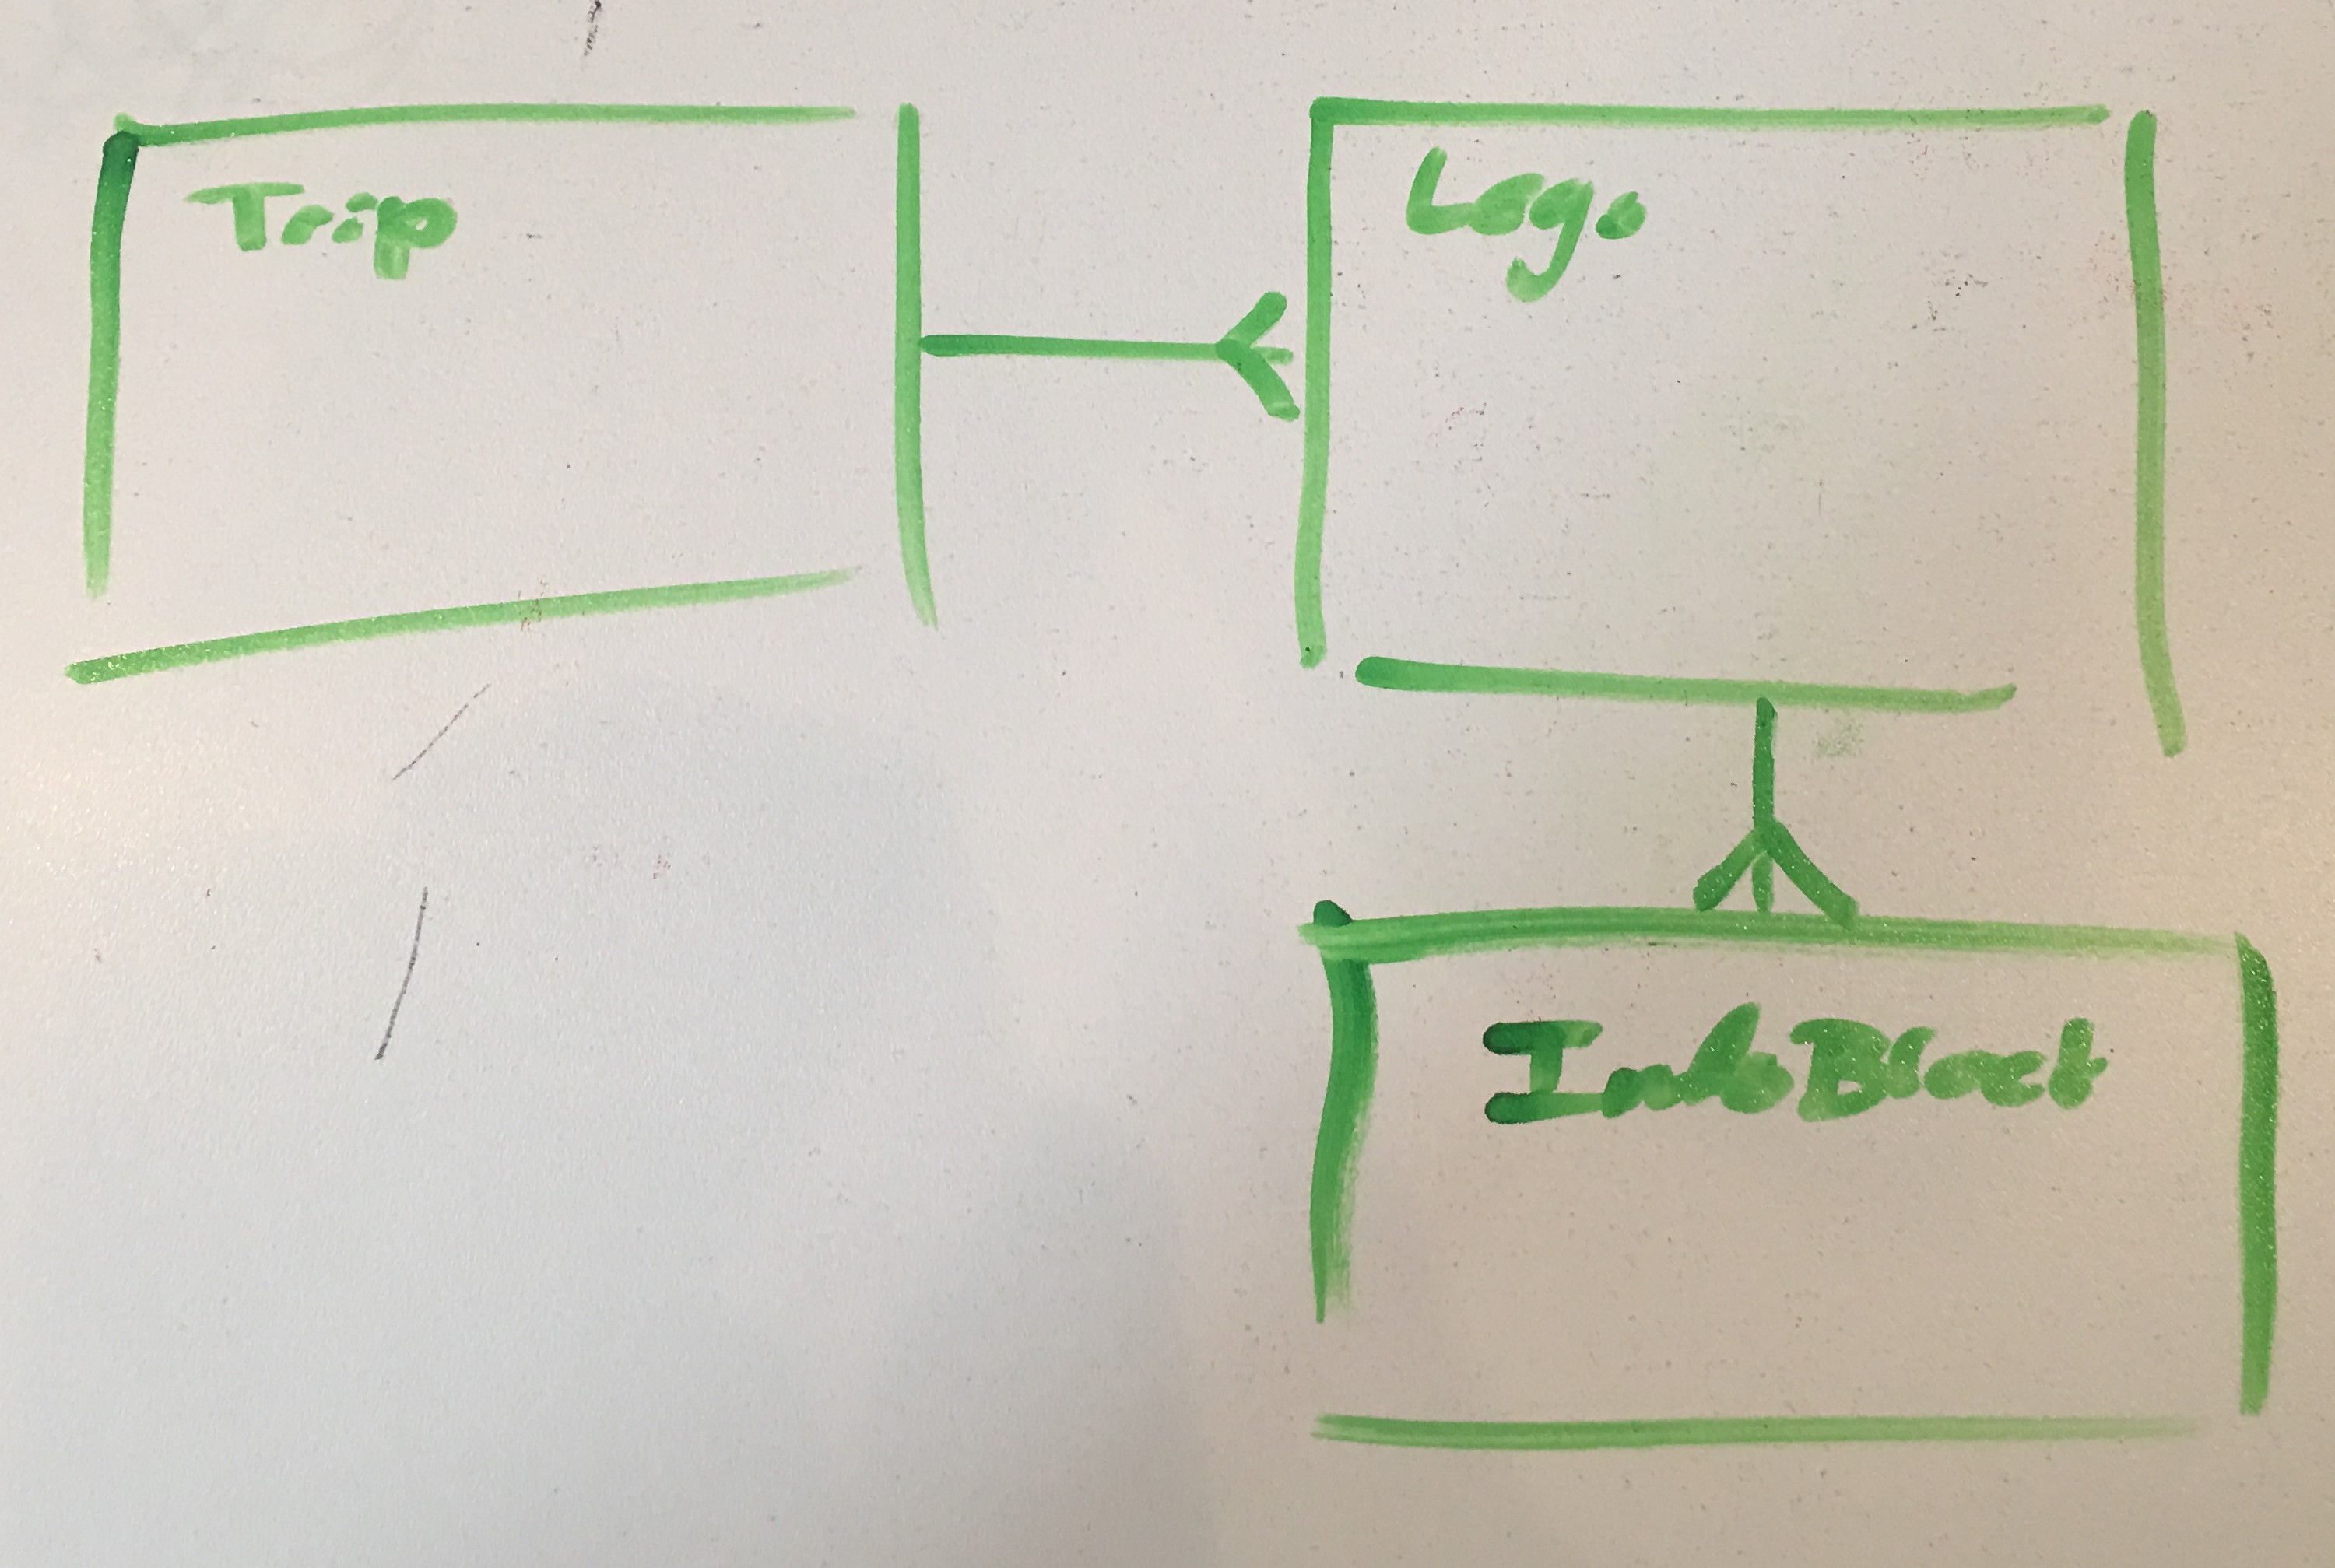 Trip
Logo
InfoBlock